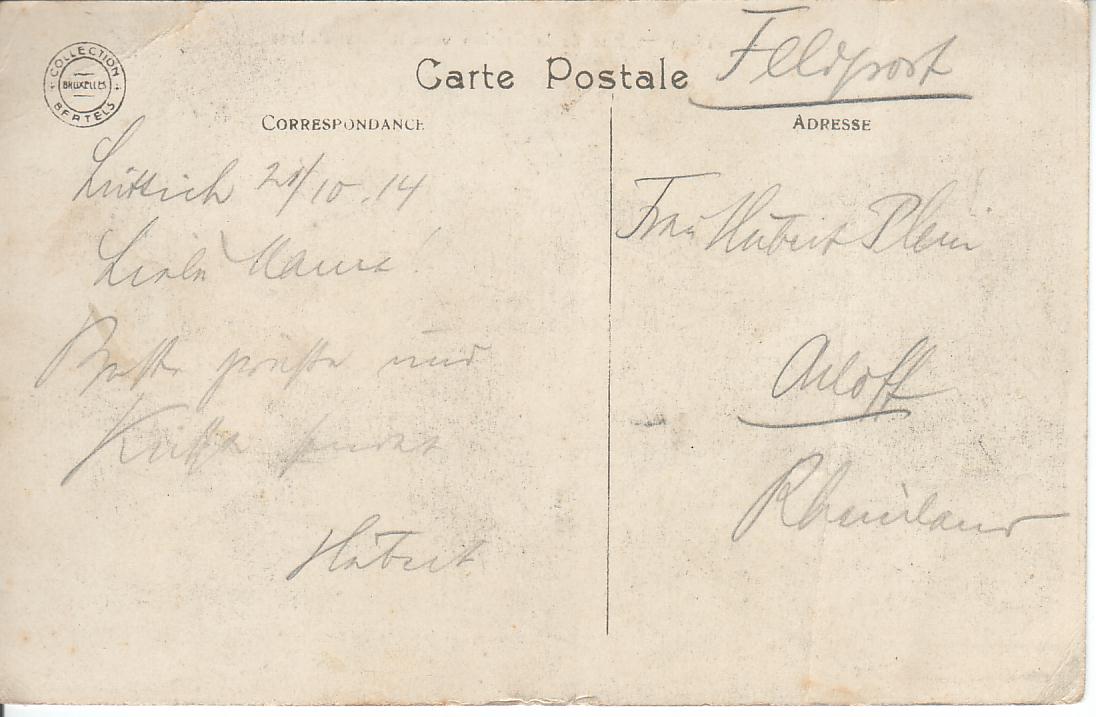 COLLECTION
BRUXELLES
BERTELS
Carte Postale
Feldpost
CORRESPONDANCE
ADRESSE
Lüttich 21/10.14
Liebe
Beste grüsse und
Küsse sendet
Hubert
Frau Hubert Plein
Arloff
Rheinland